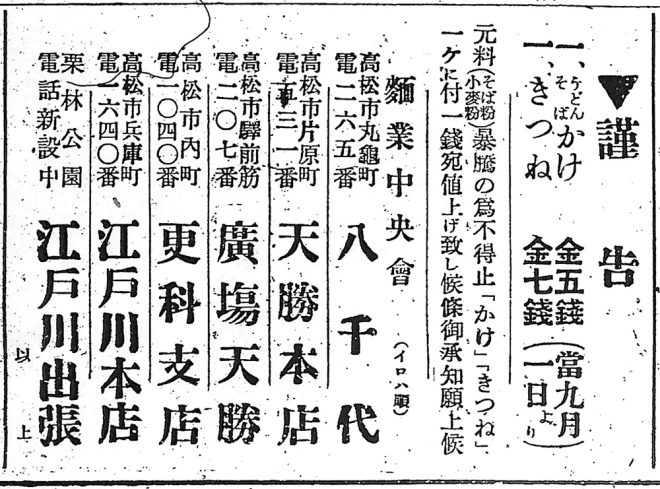 ▼謹告
一、うどんそばかけ 金五錢(當九月
一、きつね 金七錢(一日より
元料(そば粉小麥粉)暴騰の爲不得止「かけ」「きつね」
一ケに付一錢宛値上げ致し候條御承知願上候
麵業中央會(イロハ順)
高松市丸龜町
電二六五番
八千代
高松市片原町
電三一番
天勝本店
高松市驛前筋
電二〇七番
廣塲天勝
高松市内町
電一〇四〇番
更科支店
高松市兵庫町
電一六四〇番
江戸川本店
栗林公園
電話新設中
江戸川出張
以上